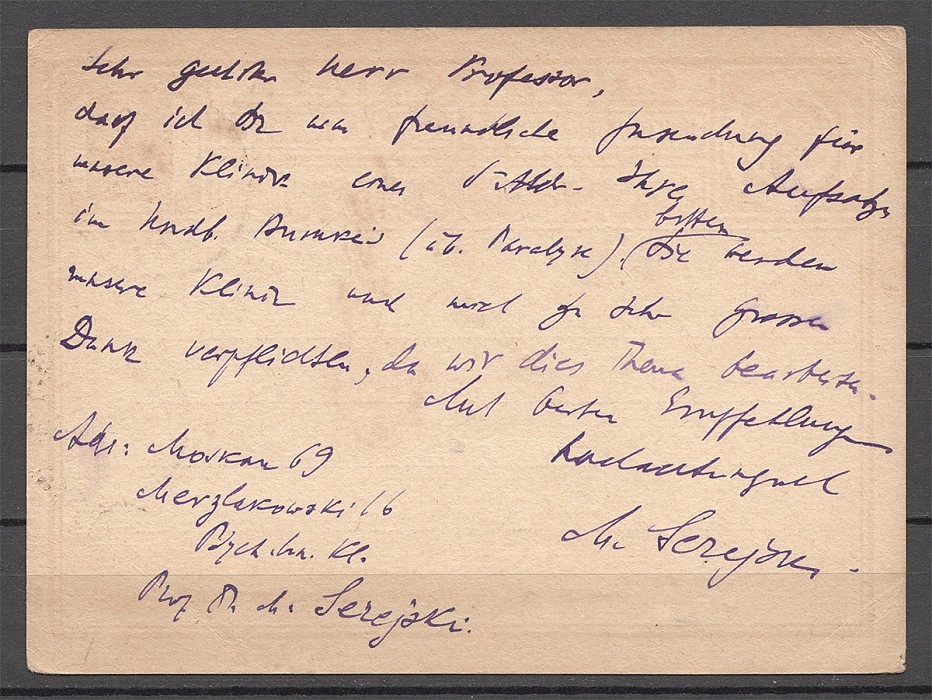 Sehr geehrter Herr Professor,
darf ich Sie um freundliche Zusendung für
unsere Klinik eines Ihres Aufsatzes
bitten
im Handb. Bumke's (üb. Paralyse). Sie werden
unsere Klinik und mich zu sehr grossem
Dank verpflichten, da wir dies Thema bearbeiten.
Mit besten Empfehlungen
hochachtungsvoll
M. Serejski.
Adr: Moskau 69
Merzlakowski 16
Psych. Kl.
Prof. Dr. M. Serejski.